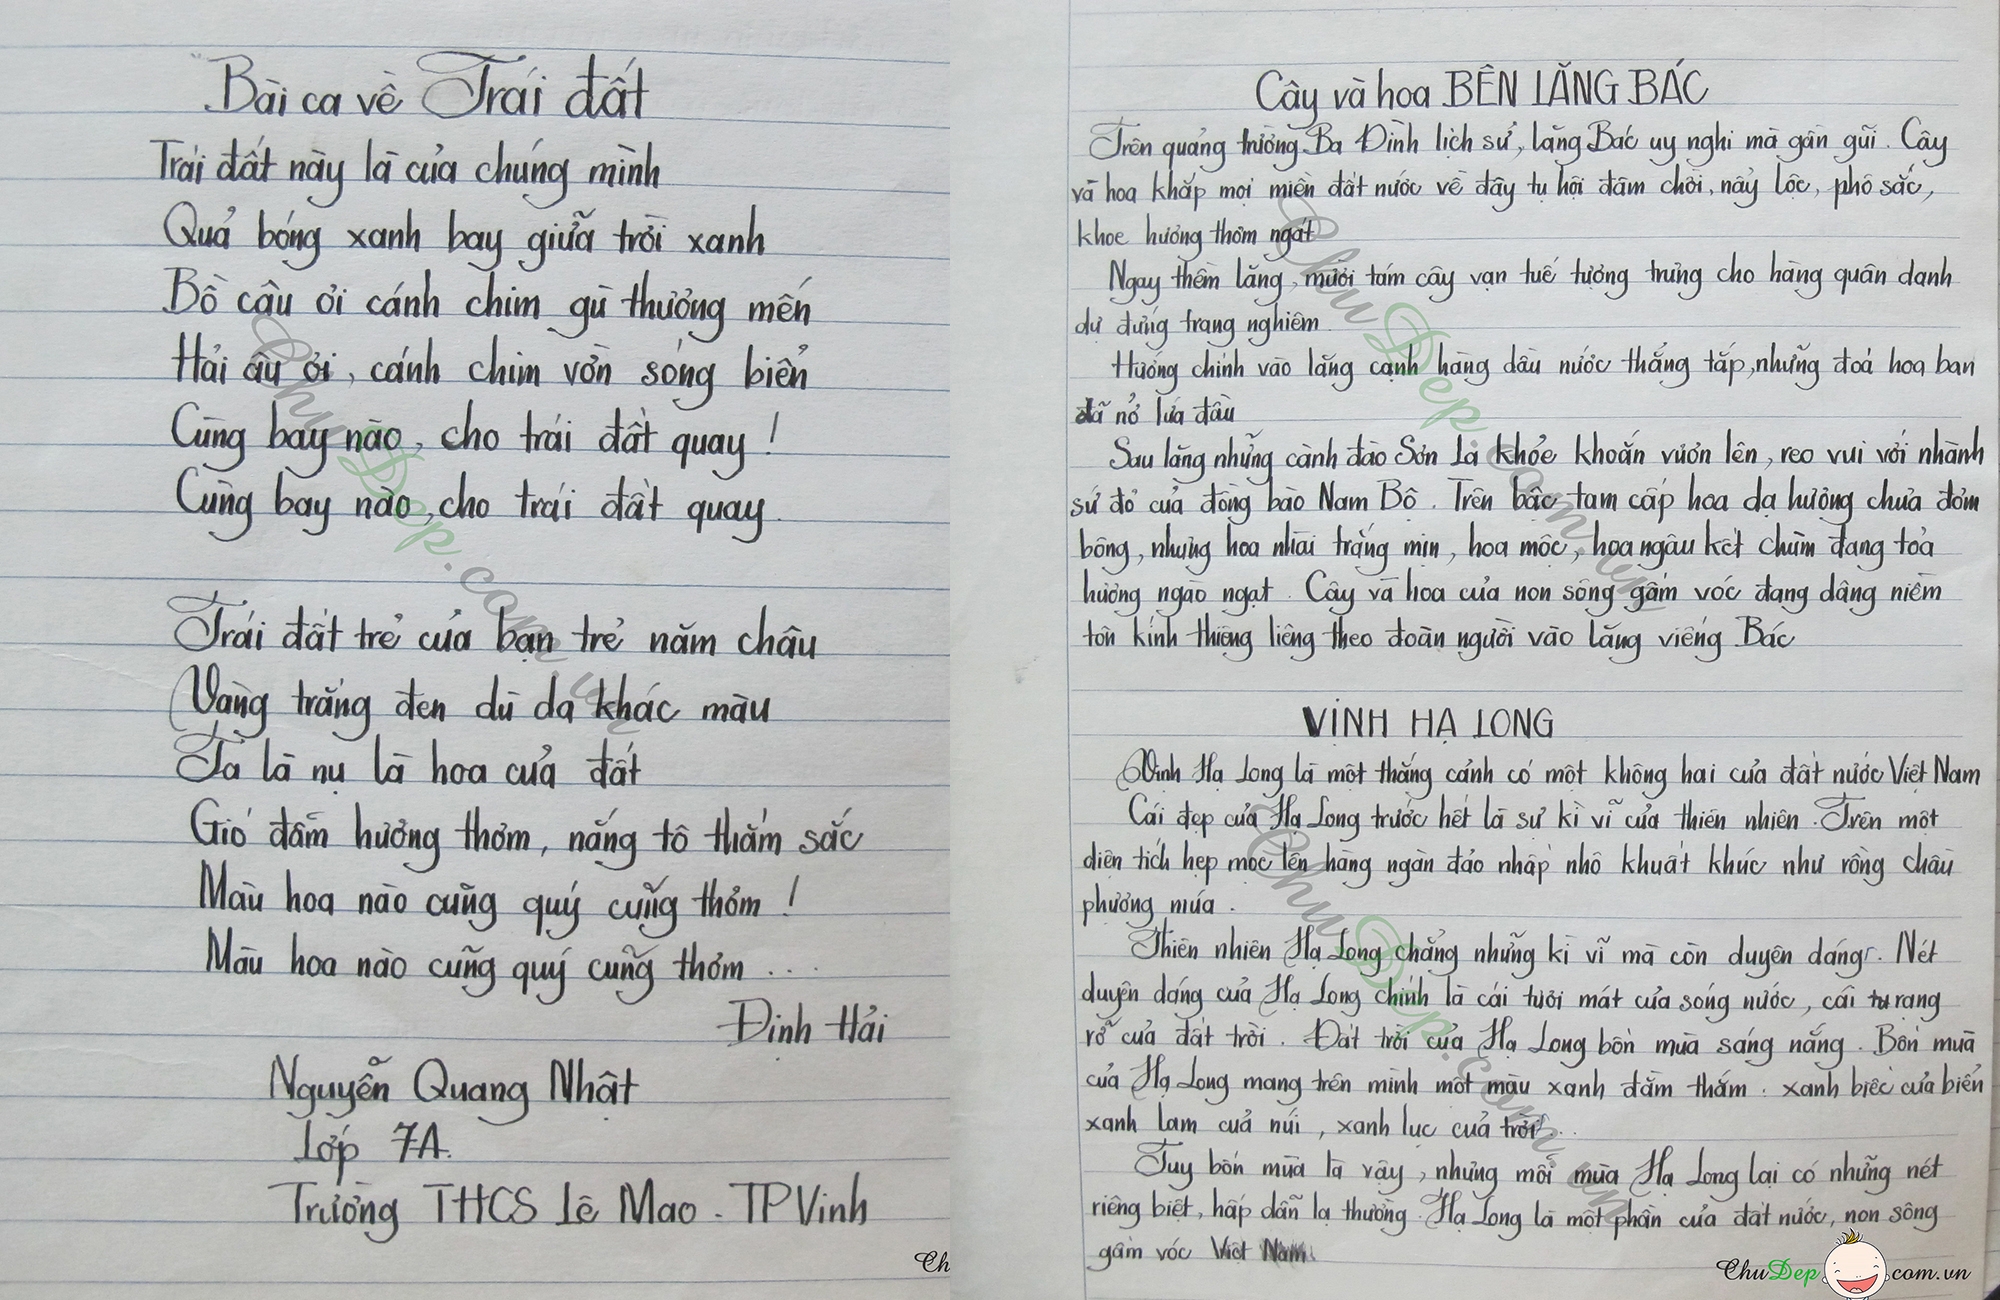 Bài ca về Trái đất
Trái đất này là của chúng mình
Quả bóng xanh bay giữa trời xanh
Bồ câu ơi cánh chim gù thương mến
Hải âu ơi, cánh chim vờn sóng biển
Cùng bay nào, cho trái đất quay !
Cùng bay nào, cho trái đất quay.
Trái đất trẻ của bạn trẻ năm châu
Vàng trắng đen dù da khác màu
Ta là nụ là hoa của đất
Gió đẫm hương thơm, nắng tô thắm sắc
Màu hoa nào cũng quý cũng thơm !
Màu hoa nào cũng quý cũng thơm ....
Định Hải
Nguyễn Quang Nhật
Lớp 7A.
Trường THCS Lê Mao - TP Vinh
Ch
Cây và hoa BÊN LĂNG BÁC
Trên quảng trường Ba Đình lịch sử, lăng Bác uy nghi mà gần gũi. Cây
và hoa khắp mọi miền đất nước về đây tụ hội đâm chồi, nảy lộc, phô sắc,
khoe hương thơm ngát
Ngay thềm lăng, mười tám cây vạn tuế tượng trưng cho hàng quân danh
dự đứng trang nghiêm
Hướng chính vào lăng cạnh hàng dầu nước thẳng tắp, những đoá hoa ban
đã nở lứa đầu
Sau lăng những cành đào Sơn La khỏe khoắn vươn lên, reo vui với nhành
sứ đỏ của đồng bào Nam Bộ. Trên bậc tam cấp hoa dạ hương chưa đơm
bông, nhưng hoa nhài trắng mịn, hoa mộc, hoa ngâu kết chùm đang toả
hương ngào ngạt. Cây và hoa của non sông gấm vóc đang dâng niềm
tôn kính thiêng liêng theo đoàn người vào lăng viếng Bác
VỊNH HẠ LONG
Vịnh Hạ Long là một thắng cảnh có một không hai của đất nước Việt Nam
Cái đẹp của Hạ Long trước hết là sự kì vĩ của thiên nhiên. Trên một
diện tích hẹp mọc lên hàng ngàn đảo nhấp nhô khuất khúc như rồng chầu
phượng múa.
Thiên nhiên Hạ Long chẳng những kì vĩ mà còn duyên dáng. Nét
duyên dáng của Hạ Long chính là cái tươi mát của sóng nước, cái rạng
rỡ của đất trời. Đất trời của Hạ Long bốn mùa sáng nắng. Bốn mùa
của Hạ Long mang trên mình một màu xanh đằm thắm. xanh biếc của biển
xanh lam của núi, xanh lục của trời.
Tuy bốn mùa là vậy, nhưng mỗi mùa Hạ Long lại có những nét
riêng biệt, hấp dẫn lạ thường. Hạ Long là một phần của đất nước, non sông
gấm vóc Việt Nam.
ChuDep.com.vn
ChuDep.com.vn
ChuDep.com.vn
ChuDep com.vn